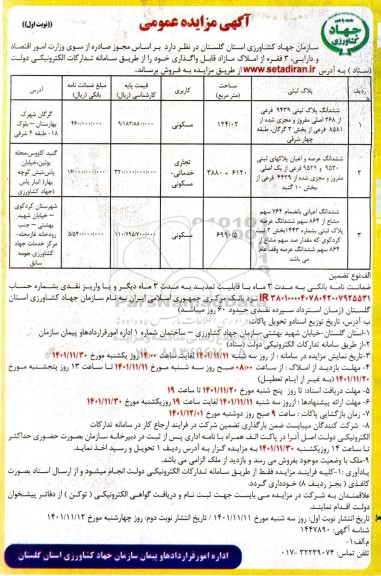 آگهی مزایده عمومی
((نوبت اول))
جهاد کشاورزی
سازمان جهاد کشاورزی استان گلستان در نظر دارد بر اساس مجوز صادره از سوی وزارت امور اقتصاد
و دارایی، ۳ فقره از املاک مازاد قابل واگذاری خود را از طریق سامانه تدارکات الکترونیکی دولت
(ستاد) به آدرس www.setadiran.ir از طریق مزایده به فروش برساند.
ردیف | پلاک ثبتی | مساحت (متر مربع) | کاربری | قیمت پایه کارشناسی (ریال) | مبلغ ضمانت نامه بانکی (ریال) | آدرس
۱ | ششدانگ پلاک ثبتی ۹۴۳۹ فرعی از ۲۶۸ اصلی مفروز و مجزی شده از ۸۵۸۱ فرعی از بخش ۳ گرگان، طبقه چهار شرقی | ۱۲۴/۰۲ | مسکونی | ۹/۱۸۳/۸۸۰/۰۰۰ | ۴۶۰/۰۰۰/۰۰۰ | گرگان شهرک بهارستان – بلوک ۱۸- طبقه ۴ شرقی
۲ | ششدانگ عرصه و اعیان پلاکهای ثبتی ۹۵۳۰ و ۹۵۲۹ فرعی از یک اصلی مفروز و مجزی شده از ۴۴۲۹ فرعی بخش ۱۰ گنبد | ۶۱۲۰ و ۳۸۸۰ | تجاری خدماتی- مسکونی | ۳۲۰/۰۰۰/۰۰۰/۰۰۰ | ۱۶/۰۰۰/۰۰۰/۰۰۰ | گنبد کاووس، محله یونین، خیابان یاس، نبش کوچه بهار (انبار یاس جهاد کشاورزی)
۳ | ششدانگ اعیانی بانضمام ۷۶۴ سهم مشاع از ۸۶۴ سهم ششدانگ عرصه پلاک ثبتی بشماره ۱۴۴۳ بخش ۲ ثبت کردکوی که مقدار صد سهم مشاع از ۸۶۴ سهم ششدانگ عرصه وقف عام می باشد | ۶۹۹۰/۵ | مسکونی | ۱۱۰/۷۹۵/۷۰۰/۰۰۰ | ۵/۵۴۰/۰۰۰/۰۰۰ | شهرستان کردکوی – خیابان شهید بهشتی – جنب رودخانه غازمحله- مرکز خدمات جهاد کشاورزی حومه سابق
الف: نوع تضمین
ضمانت نامه بانکی به مدت ۳ ماه با قابلیت تمدید به مدت ۳ ماه دیگر و یا واریز نقدی بشماره حساب
IR ۳۸۰۱۰۰۰۰۴۰۷۸۰۴۲۰۰۷۹۲۵۵۳۱ نزد بانک مرکزی جمهوری اسلامی ایران به نام سازمان جهاد کشاورزی استان
گلستان (زمان استرداد سپرده نقدی حدود ۶۰ روز میباشد)
ب: آدرس، تاریخ توزیع اسناد و تحویل پاکات:
۱-استان گلستان -خیابان شهید بهشتی-سازمان جهاد کشاورزی – ساختمان شماره ۱ اداره امور قراردادها و پیمان سازمان
۲-از طریق سامانه تدارکات الکترونیکی دولت (ستاد)
۳-تاریخ نمایش مزایده در سامانه : از روز سه شنبه ۱۴۰۱/۱۱/۱۱ لغایت ساعت ۱۴:۰۰ روز یکشنبه مورخ ۱۴۰۱/۱۱/۳۰
۴- مهلت بازدید از املاک : از ساعت ۰۸:۰۰ صبح روز سه شنبه مورخ ۱۴۰۱/۱۱/۱۱ تا ساعت ۱۳ روز پنجشنبه مورخ
۱۴۰۱/۱۱/۲۰ (به غیر از ایام تعطیل)
۵- مهلت دریافت اسناد: تا روز پنج شنبه مورخ ۱۴۰۱/۱۱/۲۰ تا ساعت ۱۹
۶- مهلت ارائه پیشنهادها : از روز سه شنبه ۱۴۰۱/۱۱/۱۱ لغایت ساعت ۱۹ روز یکشنبه مورخ ۱۴۰۱/۱۱/۳۰
۷- زمان بازگشایی پاکات : ساعت ۹ صبح روز دوشنبه مورخ ۱۴۰۱/۱۲/۰۱
۸- شرکت کنندگان میبایست ضمن بارگذاری تضمین شرکت در فرایند ارجاع کار در سامانه تدارکات
الکترونیکی دولت اصل آنرا در پاکت الف همراه با نامه اداری پس از ثبت در دبیرخانه سازمان بصورت حضوری حداکثر
تا ساعت ۱۴ روز یکشنبه ۱۴۰۱/۱۱/۳۰ به مزایده گزار به آدرس ردیف ۱ تحویل و رسید اخذ نمایند.
۹-ملک با وضعیت موجود بفروش می رسد و بازدید از ملک الزامی می باشد.
یادآوری :۱-کلیه فرایند مزایده فقط از طریق سامانه تدارکات الکترونیکی دولت انجام میشود و از ارسال اسناد بصورت
کاغذی (بجز ردیف ۸) خودداری گردد.
علاقمندان به شرکت در مزایده می بایست جهت ثبت نام و دریافت گواهی الکترونیکی (توکن) از دفاتر پیشخوان
دولت اقدام نمایند.
تاریخ انتشار نوبت اول: روز سه شنبه مورخ ۱۴۰۱/۱۱/۱۱ / تاریخ انتشار نوبت دوم: روز چهارشنبه مورخ ۱۴۰۱/۱۱/۱۲
شناسه آگهی: ۱۴۴۷۸۹۰
م.الف:۱۰
تلفن تماس: ۳۲۲۳۹۰۷۴-۰۱۷
اداره امور قراردادها و پیمان سازمان جهاد کشاورزی استان گلستان